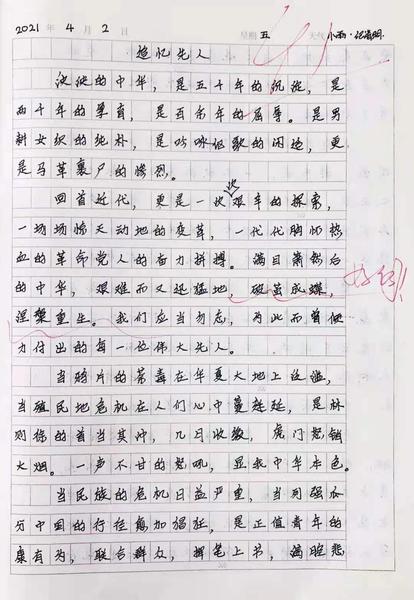 2021 年 4 月 2 日 星期 五 天气 小雨·记清明
追忆先人
泱泱的中华，是五千年的沉淀，是
两千年的孕育，是百余年的屈辱。是男
耕女织的纯朴，是吟咏讴歌的闲适，更
是马革裹尸的惨烈。
回首近代，更是一次次艰辛的探索，
一场场惊天动地的变革，一代代胸怀热
血的革命党人的奋力拼搏。满目萧然后
的中华，艰难而又迅猛地，破茧成蝶，
好句！
涅槃重生。我们应当勿忘，为此而曾使
力付出的每一位伟大先人。
当鸦片的荼毒在华夏大地上泛滥，
当殖民地危机在人们心中蔓延，是林
则徐的首当其冲，几日收缴，虎门怒销
火烟。一声不甘的怒吼，显我中华本色。
当民族的危机日益严重，当列强瓜
分中国的行径愈加猖狂，是正值青年的
康有为，联合群众，挥笔上书，满腔悲